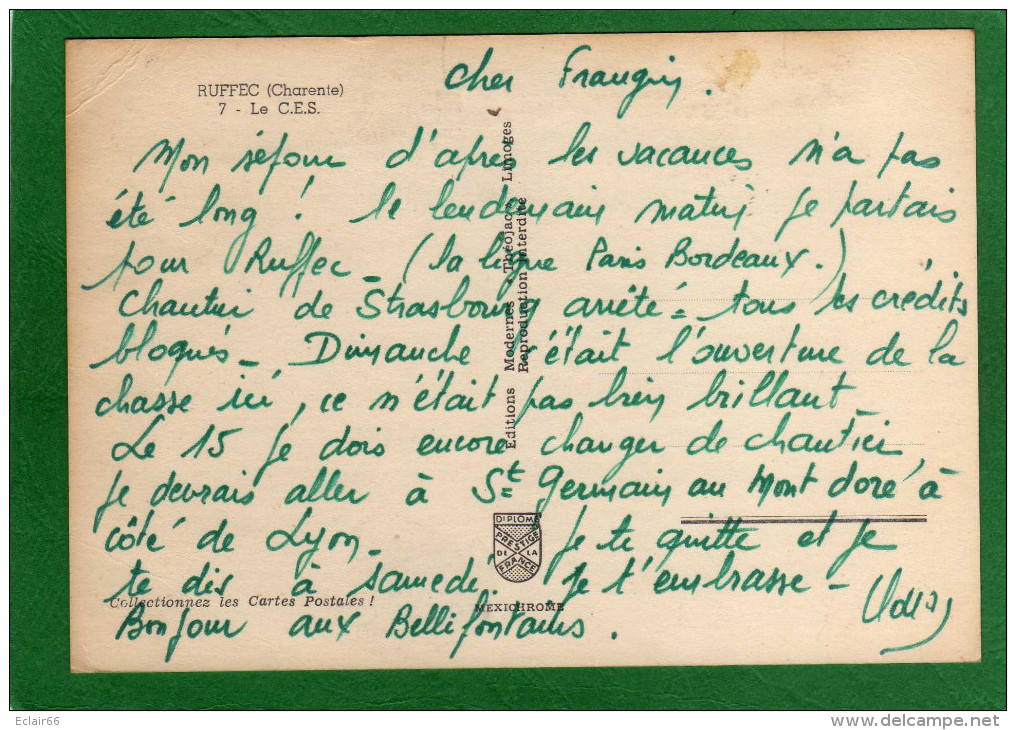 RUFFEC (Charente)
7 - Le C.E.S.
Cher Frangin.
Mon séjour d'après les vacances n'a pas
été long ! le lendemain matin je partais
pour Ruffec - (la ligne Paris Bordeaux.)
Chantier de Strasbourg arrêté = tous les crédits
bloqués - Dimanche c'était l'ouverture de la
chasse ici, ce n'était pas bien brillant -
Le 15 je dois encore changer de chantier,
je devrais aller à St Germain au Mont doré à
côté de Lyon - je te quitte et je
te dis à samedi. Je t'embrasse -
Bonjour aux Bellifontains.
Editions Modernes « Théojac » Limoges
Reproduction interdite
DIPLOME
PRESTIGE
DE LA
FRANCE
Collectionnez les Cartes Postales !
MEXICHROME
Eclair66
www.delcampe.net